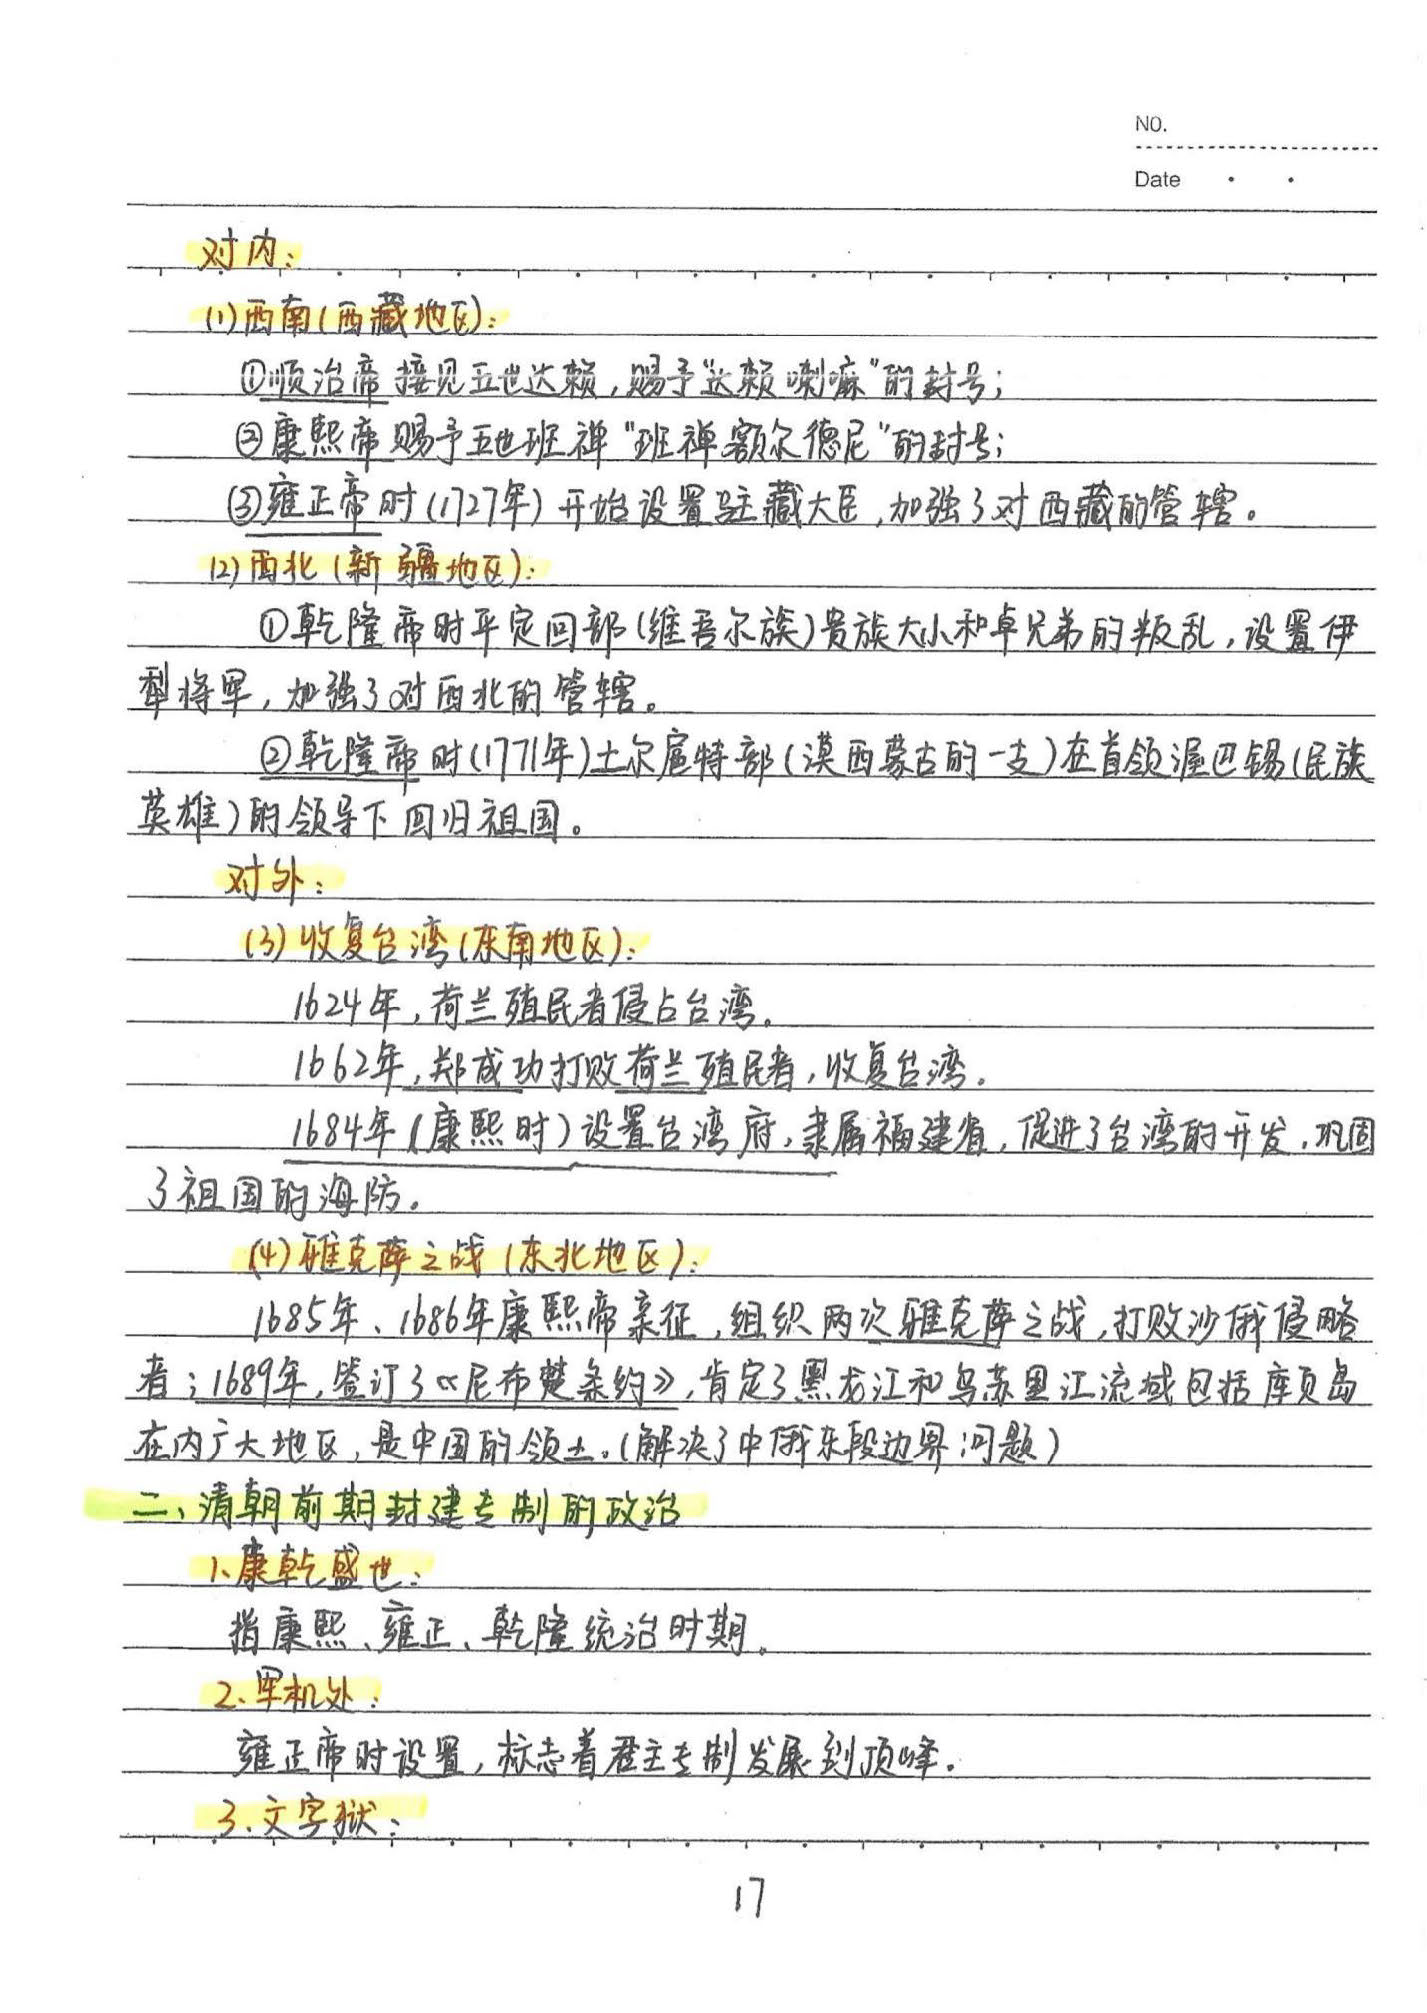 NO.
Date
对内:
(1)西南(西藏地区):
①顺治帝接见五世达赖,赐予“达赖喇嘛”的封号;
②康熙帝赐予五世班禅“班禅额尔德尼”的封号;
③雍正帝时(1727年)开始设置驻藏大臣,加强了对西藏的管辖。
(2)西北(新疆地区):
①乾隆帝时平定回部(维吾尔族)贵族大小和卓兄弟的叛乱,设置伊
犁将军,加强了对西北的管辖。
②乾隆帝时(1771年)土尔扈特部(漠西蒙古的一支)在首领渥巴锡(民族
英雄)的领导下回归祖国。
对外:
(3)收复台湾(东南地区):
1624年,荷兰殖民者侵占台湾。
1662年,郑成功打败荷兰殖民者,收复台湾。
1684年(康熙时)设置台湾府,隶属福建省,促进了台湾的开发,巩固
了祖国的海防。
(4)雅克萨之战(东北地区):
1685年、1686年康熙帝亲征,组织两次雅克萨之战,打败沙俄侵略
者;1689年,签订了《尼布楚条约》,肯定了黑龙江和乌苏里江流域包括库页岛
在内广大地区,是中国的领土。(解决了中俄东段边界问题)
二、清朝前期封建专制的政治
1、康乾盛世:
指康熙、雍正、乾隆统治时期。
2、军机处:
雍正帝时设置,标志着君主专制发展到顶峰。
3、文字狱:
17